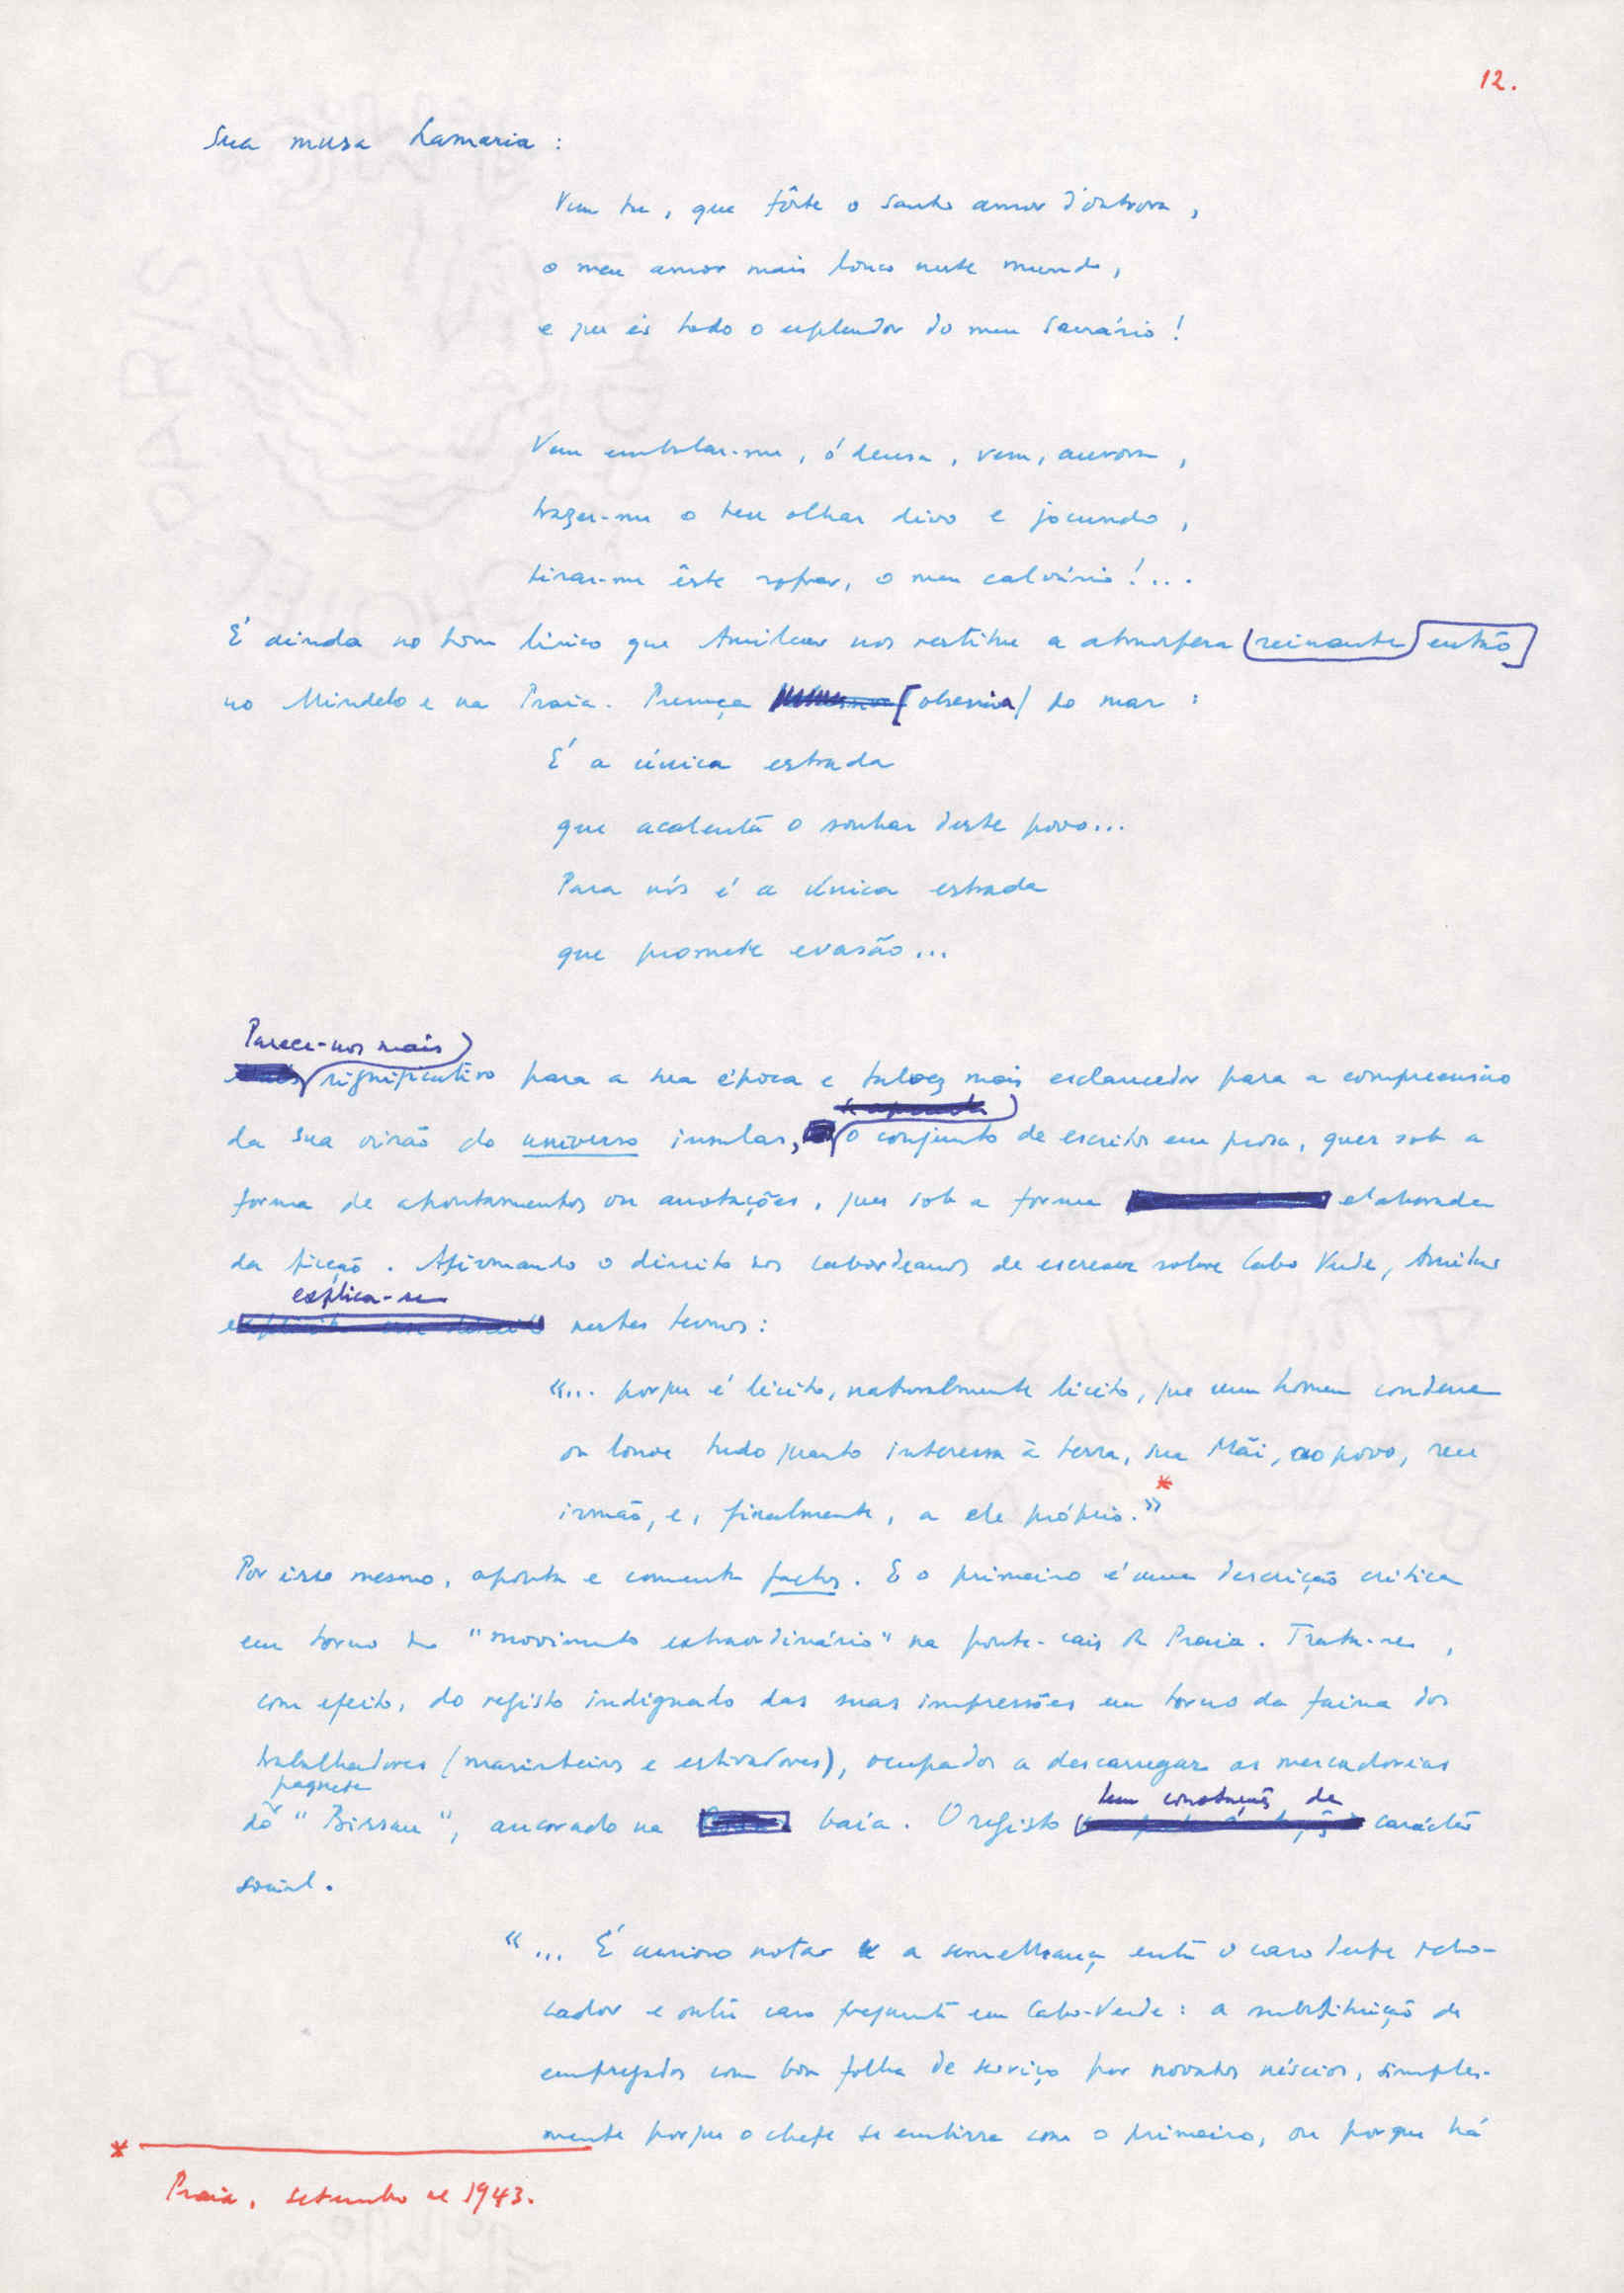 12.
Sua musa Lamaria :
Vem tu, que fôste o santo amor d'outrora,
o meu amor mais louco neste mundo,
e que és todo o esplendor do meu sacrário !
Vem embalar-me, ó deusa, vem, aurora,
trazer-me o teu olhar divo e jocundo,
tirar-me êste sofrer, o meu calvário ! ...
É ainda no tom lírico que Amilcar nos restitue a atmosfera reinante então
no Mindelo e na Praia. Presença obsessiva do mar :
É a única estrada
que acalenta o sonhar deste povo...
Para nós é a única estrada
que promete evasão...
Parece-nos mais
significativo para a sua época e talvez mais esclarecedor para a compreensão
da sua visão do universo insular, o conjunto de escritos em prosa, quer sob a
forma de apontamentos ou anotações, quer sob a forma elaborada
da ficção. Afirmando o direito dos caboverdeanos de escrever sobre Cabo Verde, Amilcar
explica-se
nestes termos :
«... porque é lícito, naturalmente lícito, que um homem condene
ou louve tudo quanto interessa à terra, sua Mãi, ao povo, seu
irmão, e, finalmente, a ele próprio.» *
Por isso mesmo, aponta e comenta factos. E o primeiro é uma descrição crítica
em torno do "movimento extraordinário" na ponte-cais da Praia. Trata-se,
com efeito, do registo indignado das suas impressões em torno da faina dos
trabalhadores (marinheiros e estivadores), ocupados a descarregar as mercadorias
paquete
do "Bissau", ancorado na baía. O registo
tem conotações de
carácter
social.
«... É curioso notar a semelhança entre o caso deste rebo-
cador e outro caso frequente em Cabo-Verde : a substituição de
empregados com boa folha de serviço por novatos néscios, simples-
mente porque o chefe se embirra com o primeiro, ou porque há
*
Praia, setembro de 1943.